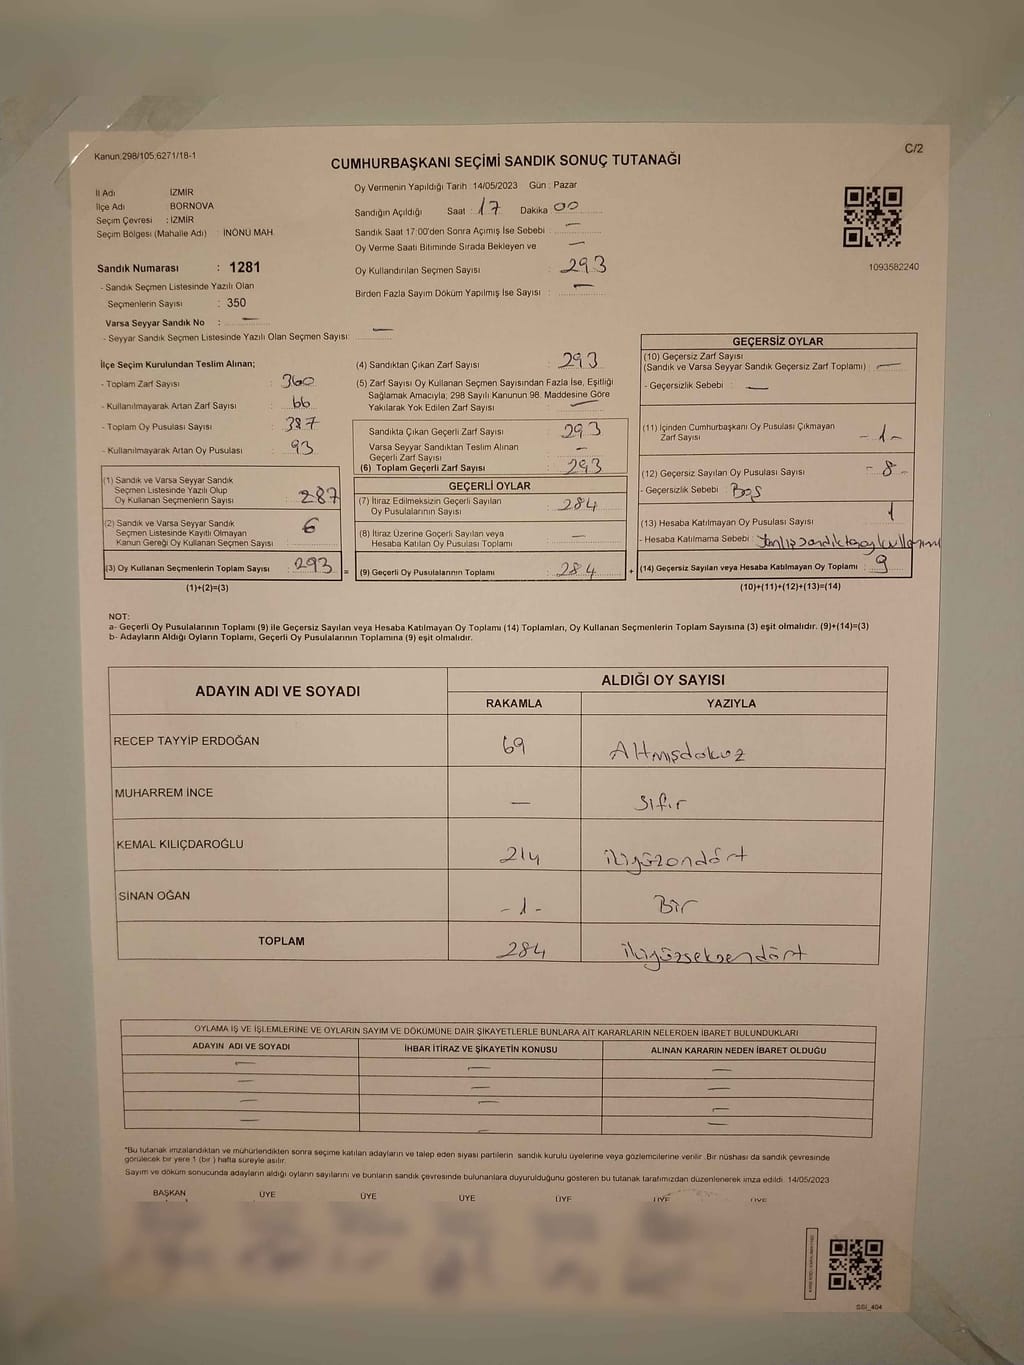 Kanun:298/105;6271/18-1
C/2
CUMHURBAŞKANI SEÇİMİ SANDIK SONUÇ TUTANAĞI
İl Adı İZMİR
İlçe Adı BORNOVA
Seçim Çevresi : İZMİR
Seçim Bölgesi (Mahalle Adı) : İNÖNÜ MAH.
Sandık Numarası : 1281
- Sandık Seçmen Listesinde Yazılı Olan
Seçmenlerin Sayısı : 350
Varsa Seyyar Sandık No : —
- Seyyar Sandık Seçmen Listesinde Yazılı Olan Seçmen Sayısı: —
Oy Vermenin Yapıldığı Tarih 14/05/2023 Gün : Pazar
Sandığın Açıldığı Saat : 17 Dakika 00
Sandık Saat 17:00'den Sonra Açımış İse Sebebi : —
Oy Verme Saati Bitiminde Sırada Bekleyen ve —
Oy Kullandırılan Seçmen Sayısı : 293
Birden Fazla Sayım Döküm Yapılmış İse Sayısı : —
1093582240
İlçe Seçim Kurulundan Teslim Alınan;
- Toplam Zarf Sayısı : 360
- Kullanılmayarak Artan Zarf Sayısı : 66
- Toplam Oy Pusulası Sayısı : 387
- Kullanılmayarak Artan Oy Pusulası : 93
(1) Sandık ve Varsa Seyyar Sandık
Seçmen Listesinde Yazılı Olup
Oy Kullanan Seçmenlerin Sayısı : 287
(2) Sandık ve Varsa Seyyar Sandık
Seçmen Listesinde Kayıtlı Olmayan
Kanun Gereği Oy Kullanan Seçmen Sayısı : 6
(3) Oy Kullanan Seçmenlerin Toplam Sayısı : 293
(1)+(2)=(3)
(4) Sandıktan Çıkan Zarf Sayısı : 293
(5) Zarf Sayısı Oy Kullanan Seçmen Sayısından Fazla İse, Eşitliği
Sağlamak Amacıyla; 298 Sayılı Kanunun 98. Maddesine Göre
Yakılarak Yok Edilen Zarf Sayısı : —
Sandıkta Çıkan Geçerli Zarf Sayısı : 293
Varsa Seyyar Sandıktan Teslim Alınan
Geçerli Zarf Sayısı : —
(6) Toplam Geçerli Zarf Sayısı : 293
GEÇERLİ OYLAR
(7) İtiraz Edilmeksizin Geçerli Sayılan
Oy Pusulalarının Sayısı : 284
(8) İtiraz Üzerine Geçerli Sayılan veya
Hesaba Katılan Oy Pusulası Toplamı : —
= (9) Geçerli Oy Pusulalarının Toplamı : 284
GEÇERSİZ OYLAR
(10) Geçersiz Zarf Sayısı
(Sandık ve Varsa Seyyar Sandık Geçersiz Zarf Toplamı) : —
- Geçersizlik Sebebi : —
(11) İçinden Cumhurbaşkanı Oy Pusulası Çıkmayan
Zarf Sayısı : -1-
(12) Geçersiz Sayılan Oy Pusulası Sayısı : -8-
- Geçersizlik Sebebi : Boş
(13) Hesaba Katılmayan Oy Pusulası Sayısı : 1
- Hesaba Katılmama Sebebi :
+ (14) Geçersiz Sayılan veya Hesaba Katılmayan Oy Toplamı : 9
(10)+(11)+(12)+(13)=(14)
NOT:
a- Geçerli Oy Pusulalarının Toplamı (9) ile Geçersiz Sayılan veya Hesaba Katılmayan Oy Toplamı (14) Toplamları, Oy Kullanan Seçmenlerin Toplam Sayısına (3) eşit olmalıdır. (9)+(14)=(3)
b- Adayların Aldığı Oyların Toplamı, Geçerli Oy Pusulalarının Toplamına (9) eşit olmalıdır.
ADAYIN ADI VE SOYADI
ALDIĞI OY SAYISI
RAKAMLA YAZIYLA
RECEP TAYYİP ERDOĞAN 69 Altmışdokuz
MUHARREM İNCE — Sıfır
KEMAL KILIÇDAROĞLU 214 ikiyüzondört
SİNAN OĞAN -1- Bir
TOPLAM 284 ikiyüzseksendört
OYLAMA İŞ VE İŞLEMLERİNE VE OYLARIN SAYIM VE DÖKÜMÜNE DAİR ŞİKAYETLERLE BUNLARA AİT KARARLARIN NELERDEN İBARET BULUNDUKLARI
ADAYIN ADI VE SOYADI İHBAR İTİRAZ VE ŞİKAYETİN KONUSU ALINAN KARARIN NEDEN İBARET OLDUĞU
— — —
— — —
— — —
— — —
*Bu tutanak imzalandıktan ve mühürlendikten sonra seçime katılan adayların ve talep eden siyasi partilerin sandık kurulu üyelerine veya gözlemcilerine verilir .Bir nüshası da sandık çevresinde
görülecek bir yere 1 (bir ) hafta süreyle asılır.
Sayım ve döküm sonucunda adayların aldığı oyların sayılarını ve bunların sandık çevresinde bulunanlara duyurulduğunu gösteren bu tutanak tarafımızdan düzenlenerek imza edildi 14/05/2023
BAŞKAN ÜYE ÜYE ÜYE ÜYE ÜYE ÜYE
SSI_404